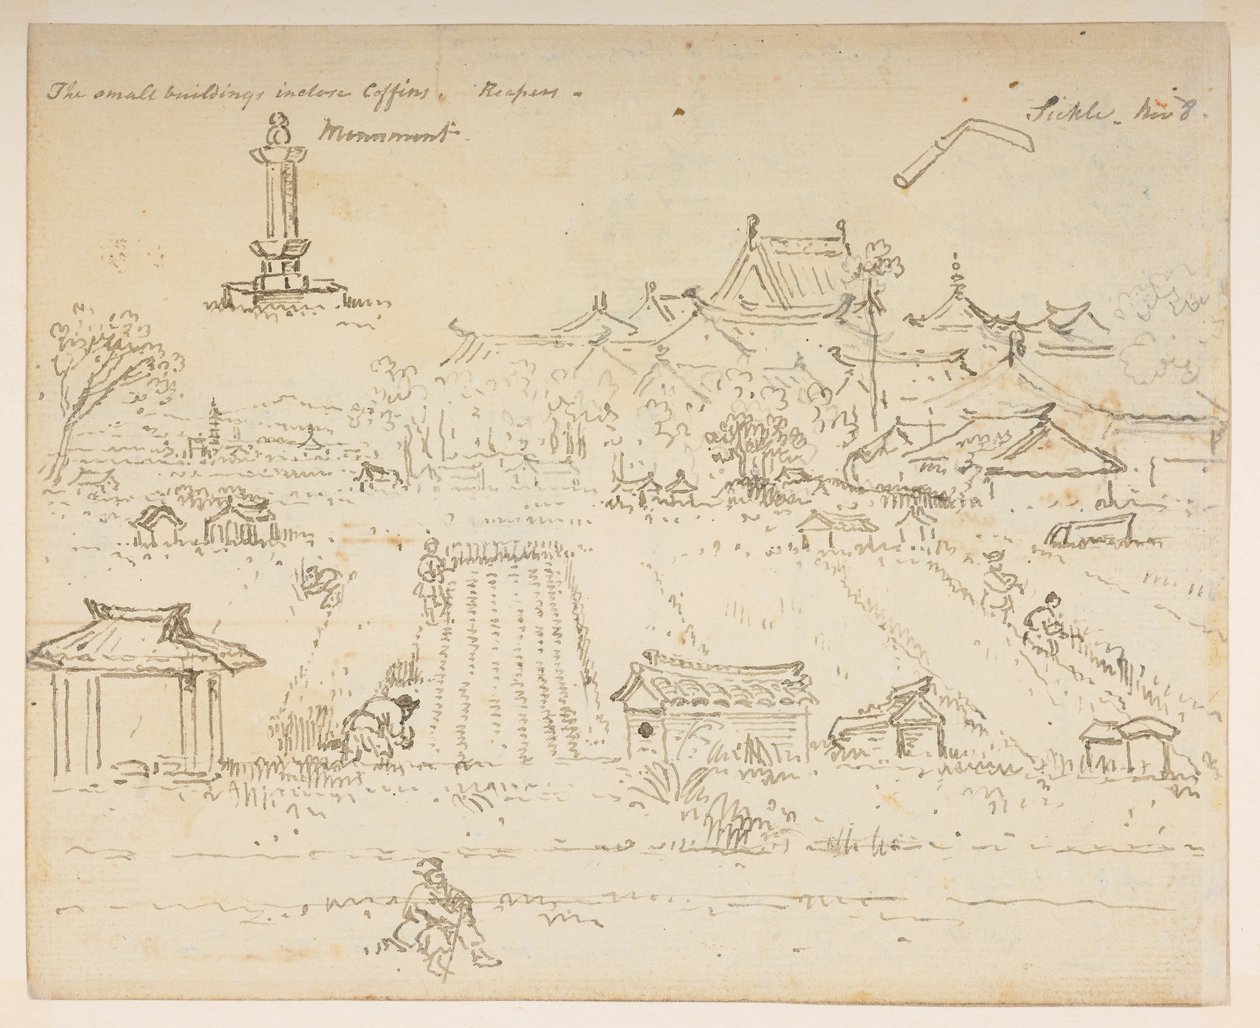 The small buildings inclose Coffins. Reapers.
Monument.
Sickle. Nov 8.